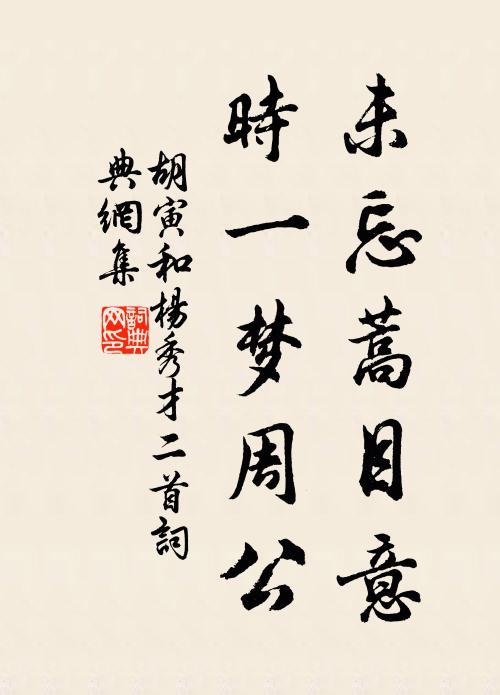 未忘蒿目意
時一梦周公
胡寅和楊秀才二首詞
典網集
詞典
网印